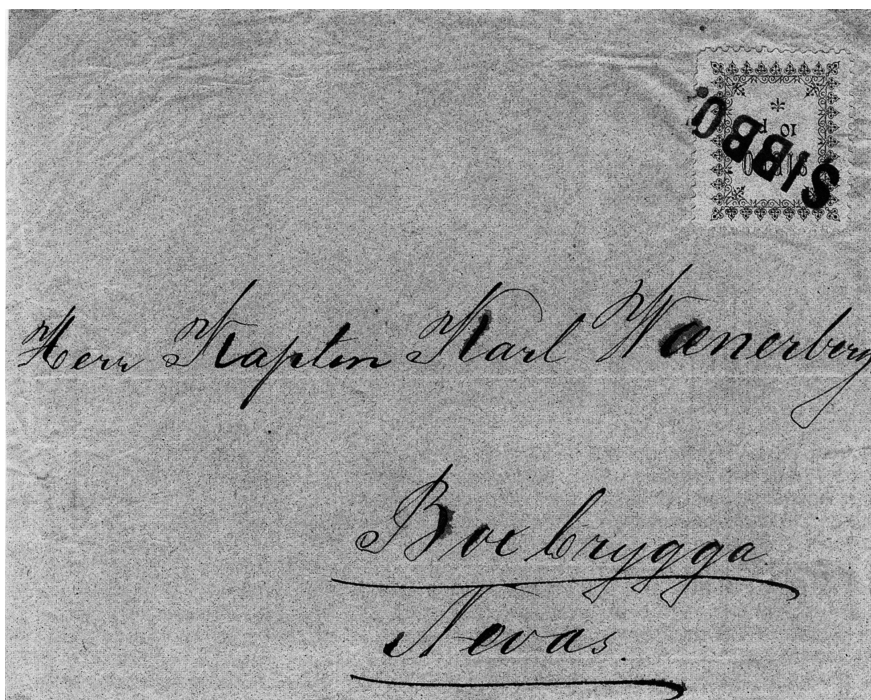 SIBBO.
10 P
Herr Kapten Karl Wænerberg
Box brygga
Nevas.